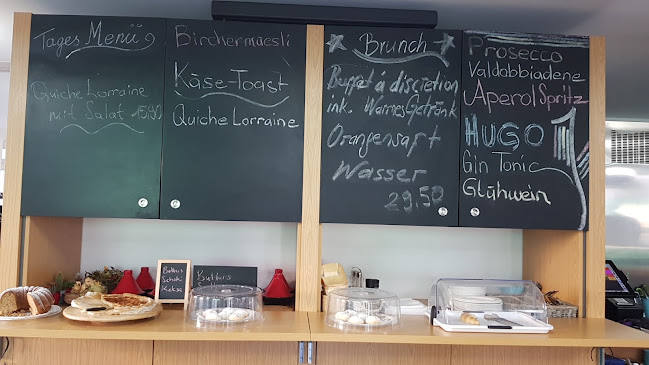 Tages Menü
Quiche Lorraine
mit Salat 15.90
Birchermüesli
Käse-Toast
Quiche Lorraine
Brunch
Buffet á discretion
ink. Warmes Getränk
Orangensaft
Wasser
29.50
Prosecco
Valdobbiadene
Aperol Spritz
HUGO
Gin Tonic
Glühwein
Butters
Schoki
Kakao
Butters